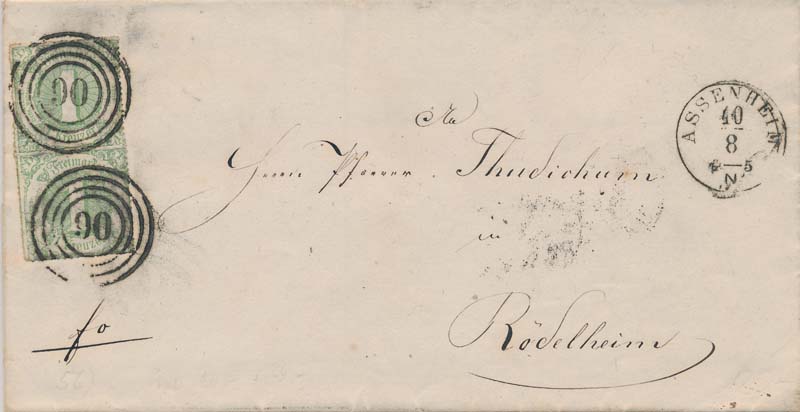 90
Kreuzer
Freimarke
90
Kreuzer
ASSENHEIM
10
8
4-5
N.
An
Herrn Pfarrer Thudichum
in
Rödelheim
fo